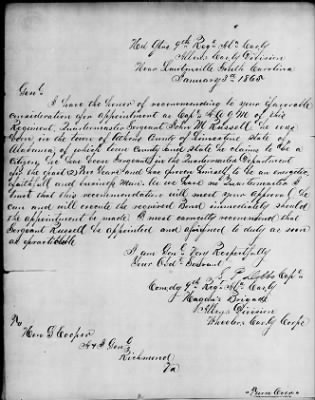 Hd Qrs 9th Regt Ala Cavly
Allens Cavly Division
Near South Carolina
January 3rd 1865
Genl
I have the honor of recommending to your favorable
consideration for appointment as Capt & A Q M of this
Regiment, Quartermaster Sergeant John M Russell, he was
born in the town of Athens County of Limestone State of
Alabama, of which town County and State he claims to be a
citizen, he has been Sergeant in the Quartermaster Department
for the past 2 years and has proven himself to be an energetic
faithful and business man. We have no Quartermaster &
trust that this recommendation will meet your approval he
can and will execute the required Bond immediately should
the appointment be made I most earnestly recommend that
Sergeant Russell be appointed and assigned to duty as soon
as practicable
I am Genl Very Respectfully
Your Obdt Servant
S. P. Dobbs Capt
Comdg 9th Regt Ala Cavly
Hagan's Brigade
Allens Division
Wheelers Cavly Corps
To
Genl S Cooper
A & I Genl
Richmond
Va